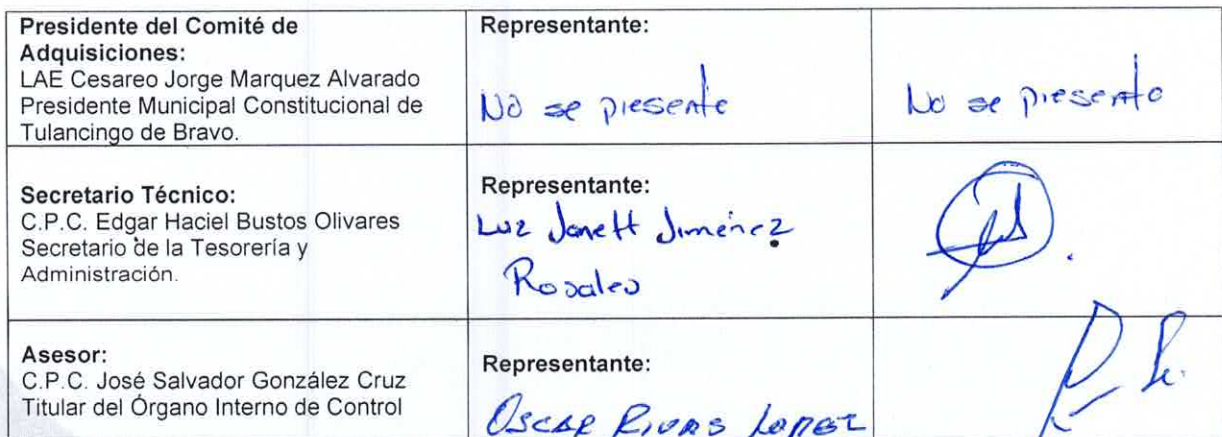 Presidente del Comité de
Adquisiciones:
LAE Cesareo Jorge Marquez Alvarado
Presidente Municipal Constitucional de
Tulancingo de Bravo.
Representante:
No se presente
No se presento
Secretario Técnico:
C.P.C. Edgar Haciel Bustos Olivares
Secretario de la Tesorería y
Administración.
Representante:
Luz Janett Jiménez
Rosales
Asesor:
C.P.C. José Salvador González Cruz
Titular del Órgano Interno de Control
Representante:
OSCAR RIVAS LOPEZ